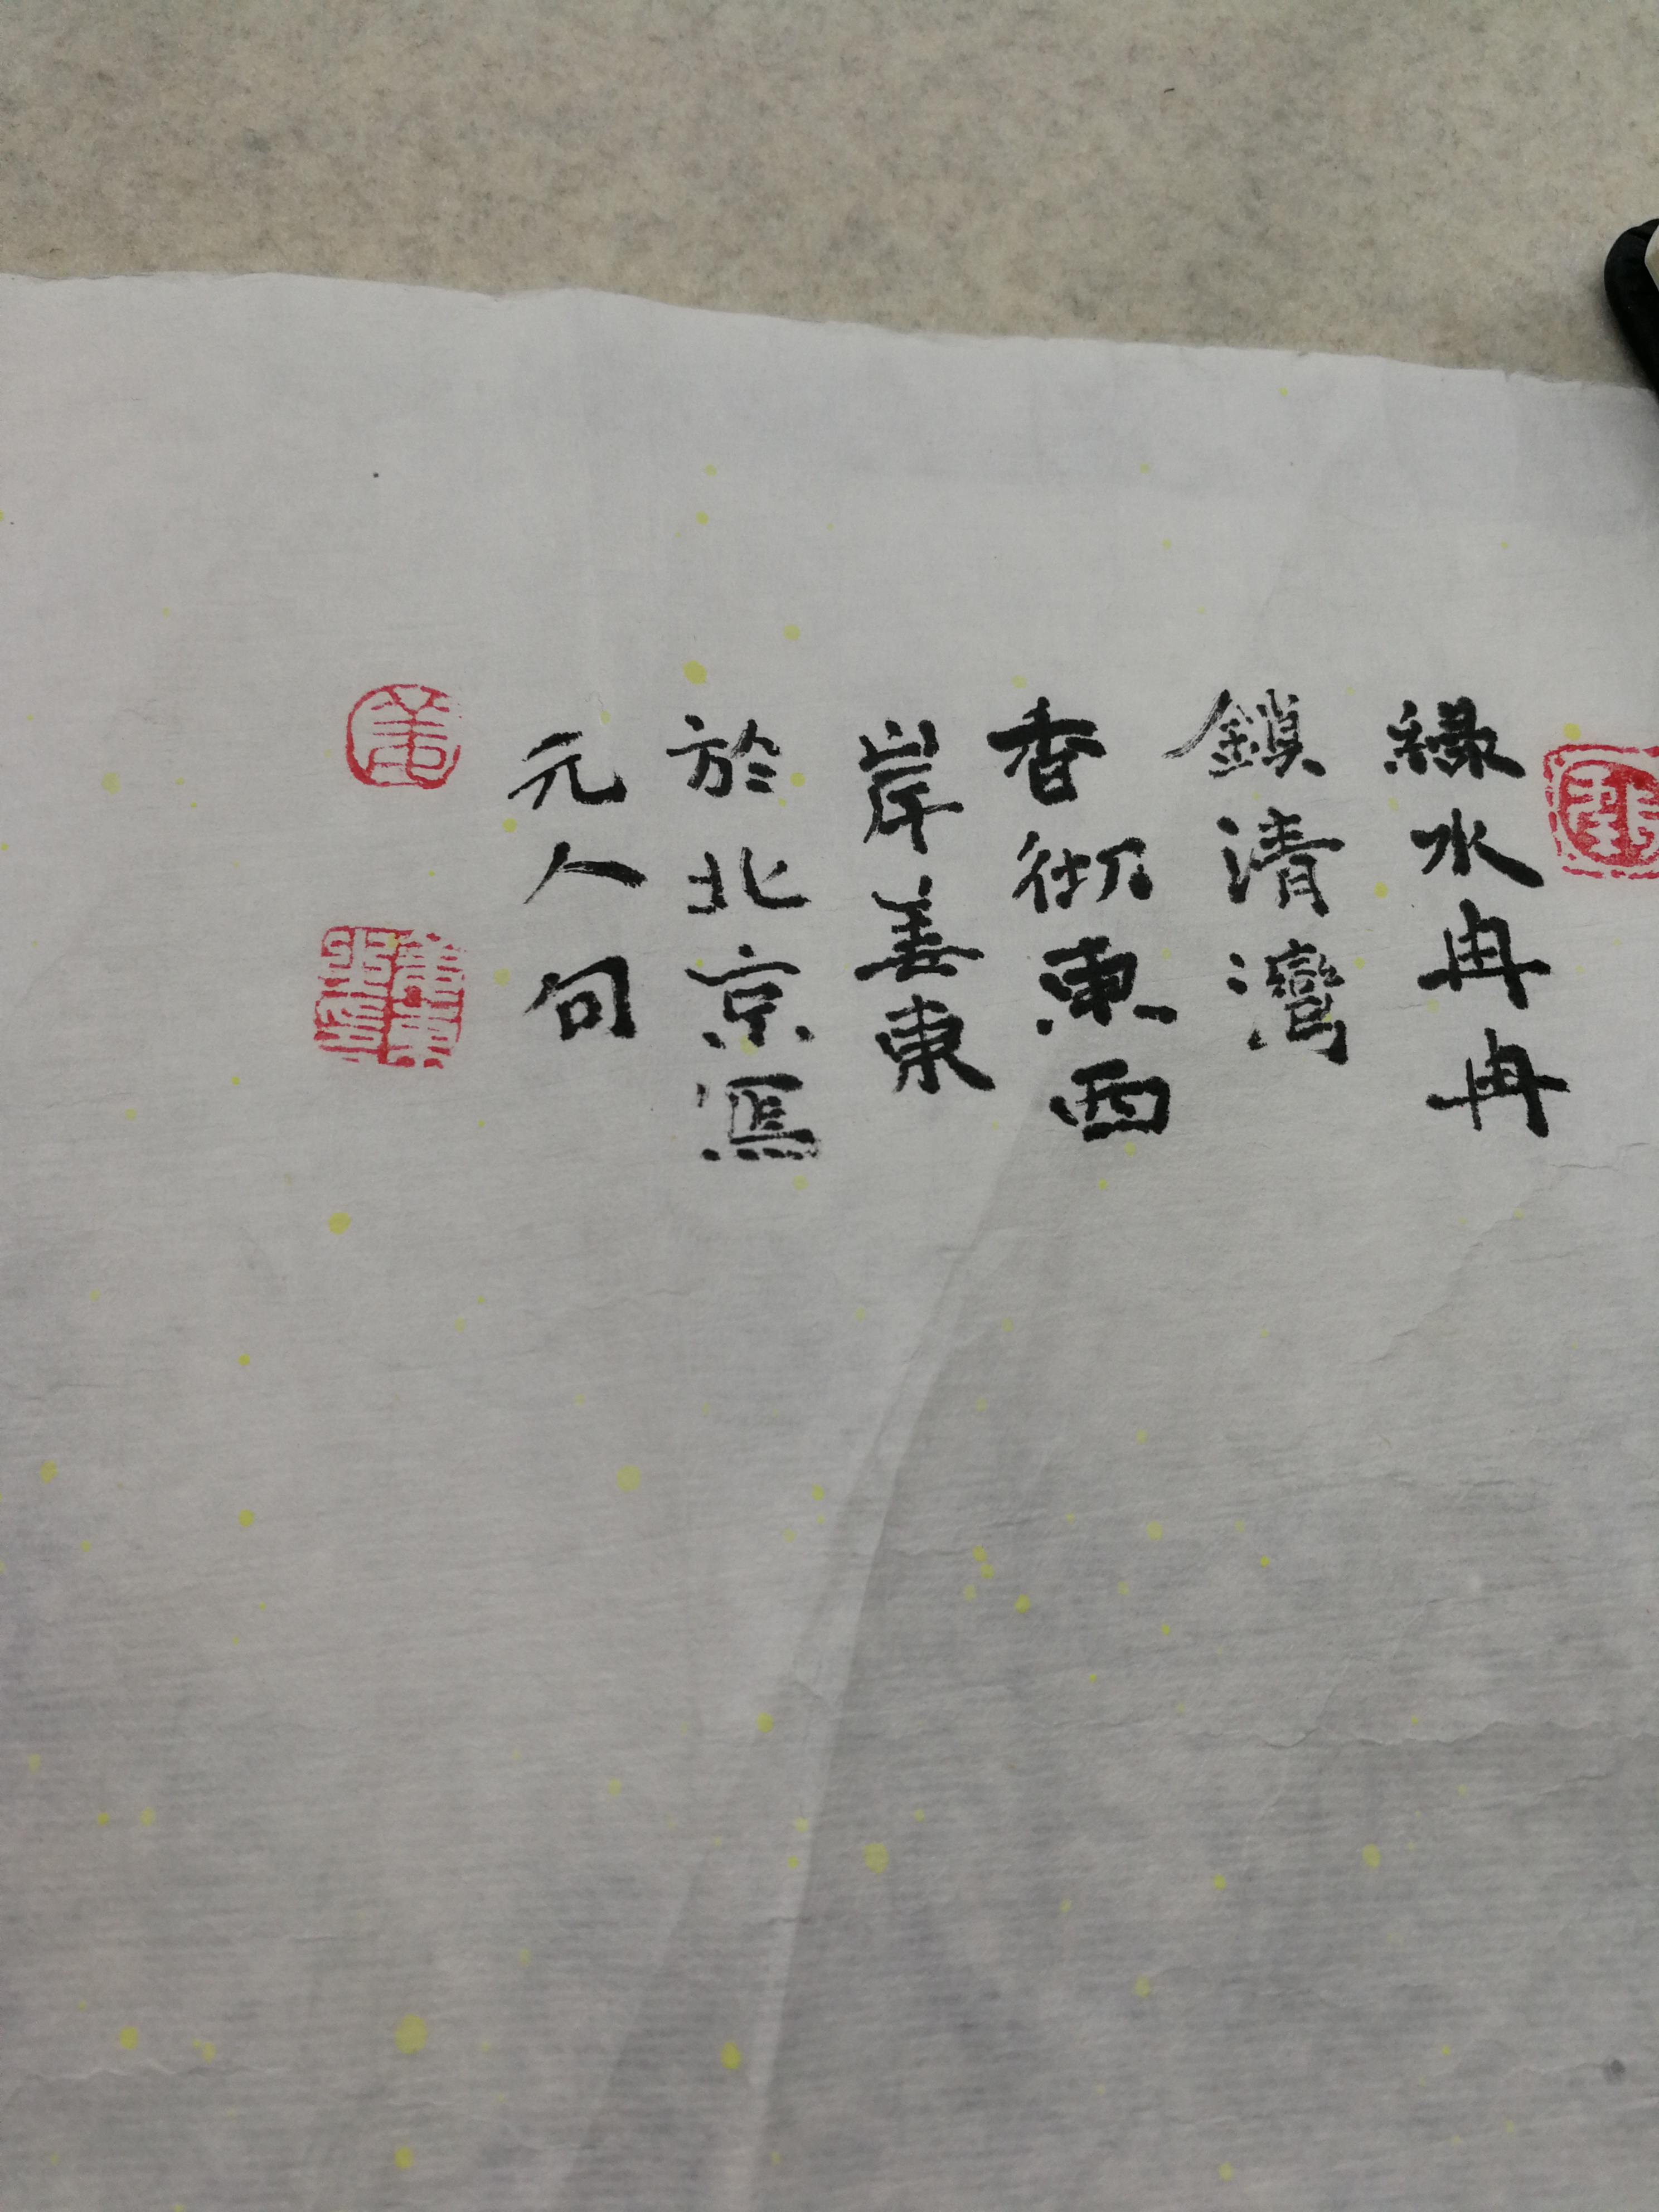 緑水冉冉
鎖清灣
香彻東西
岸姜東
於北京寫
元人句